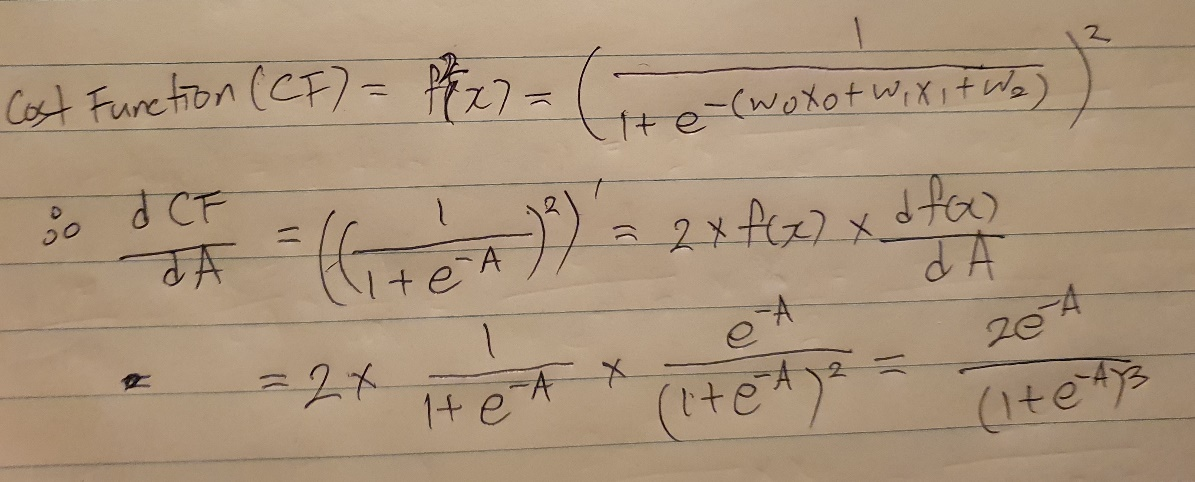 Cost Function (CF) = f²(x) = (1 / (1 + e^-(w₀x₀ + w₁x₁ + w₂)))²
∴ dCF/dA = ((1 / (1 + e^-A))²)' = 2 × f(x) × df(x)/dA
= 2 × 1/(1 + e^-A) × e^-A/(1 + e^-A)² = 2e^-A/(1 + e^-A)³